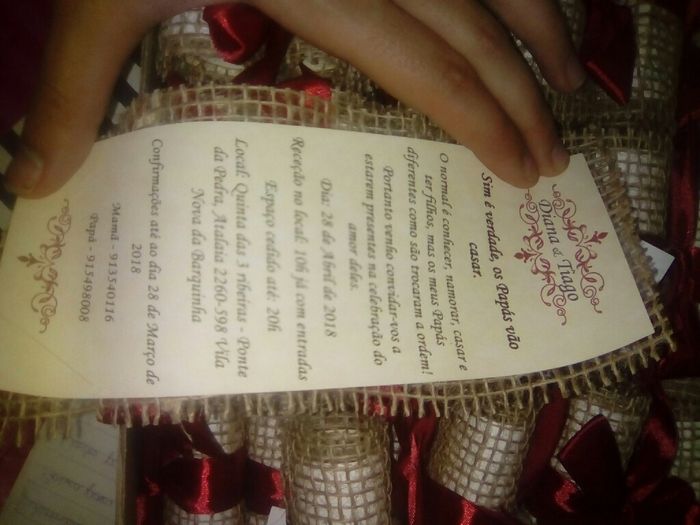 Diana & Tiago
Sim é verdade, os Papás vão
casar.
O normal é conhecer, namorar, casar e
ter filhos, mas os meus Papás
diferentes como são trocaram a ordem!
Portanto venho convidar-vos a
estarem presentes na celebração do
amor deles.
Dia: 28 de Abril de 2018
Receção no local: 10h já com entradas
Espaço cedido até: 20h
Local: Quinta das 3 ribeiras - Ponte
da Pedra, Atalaia 2260-598 Vila
Nova da Barquinha
Confirmações até ao dia 28 de Março de
2018
Mamã - 913540116
Papá - 915498008